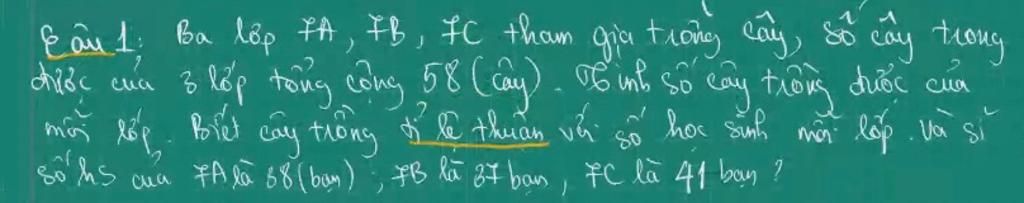 Câu 1: Ba lớp 7A, 7B, 7C tham gia trồng cây, số cây trồng
được của 3 lớp tổng cộng 58 (cây). Tính số cây trồng được của
mỗi lớp. Biết cây trồng tỉ lệ thuận với số học sinh mỗi lớp. Và sĩ
số hs của 7A là 38 (bạn), 7B là 37 bạn, 7C là 41 bạn?